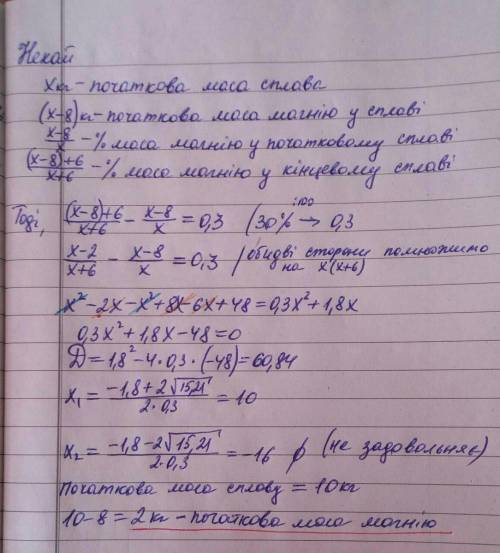 Нехай
x кг - початкова маса сплава
(x-8) кг - початкова маса магнію у сплаві
(x-8)/x - % маса магнію у початковому сплаві
((x-8)+6)/(x+6) - % маса магнію у кінцевому сплаві
Тоді, ((x-8)+6)/(x+6) - (x-8)/x = 0,3 (30% :100→ 0,3
(x-2)/(x+6) - (x-8)/x = 0,3 /обидві сторони помножимо
на x(x+6)
x² - 2x - x² + 8x - 6x + 48 = 0,3x² + 1,8x
0,3x² + 1,8x - 48 = 0
Д = 1,8² - 4·0,3·(-48) = 60,84
x₁ = (-1,8 + 2√15,21)/(2·0,3) = 10
x₂ = (-1,8 - 2√15,21)/(2·0,3) = -16 ∅ (не задовольняє)
Початкова маса сплаву = 10кг
10-8 = 2 кг - початкова маса магнію